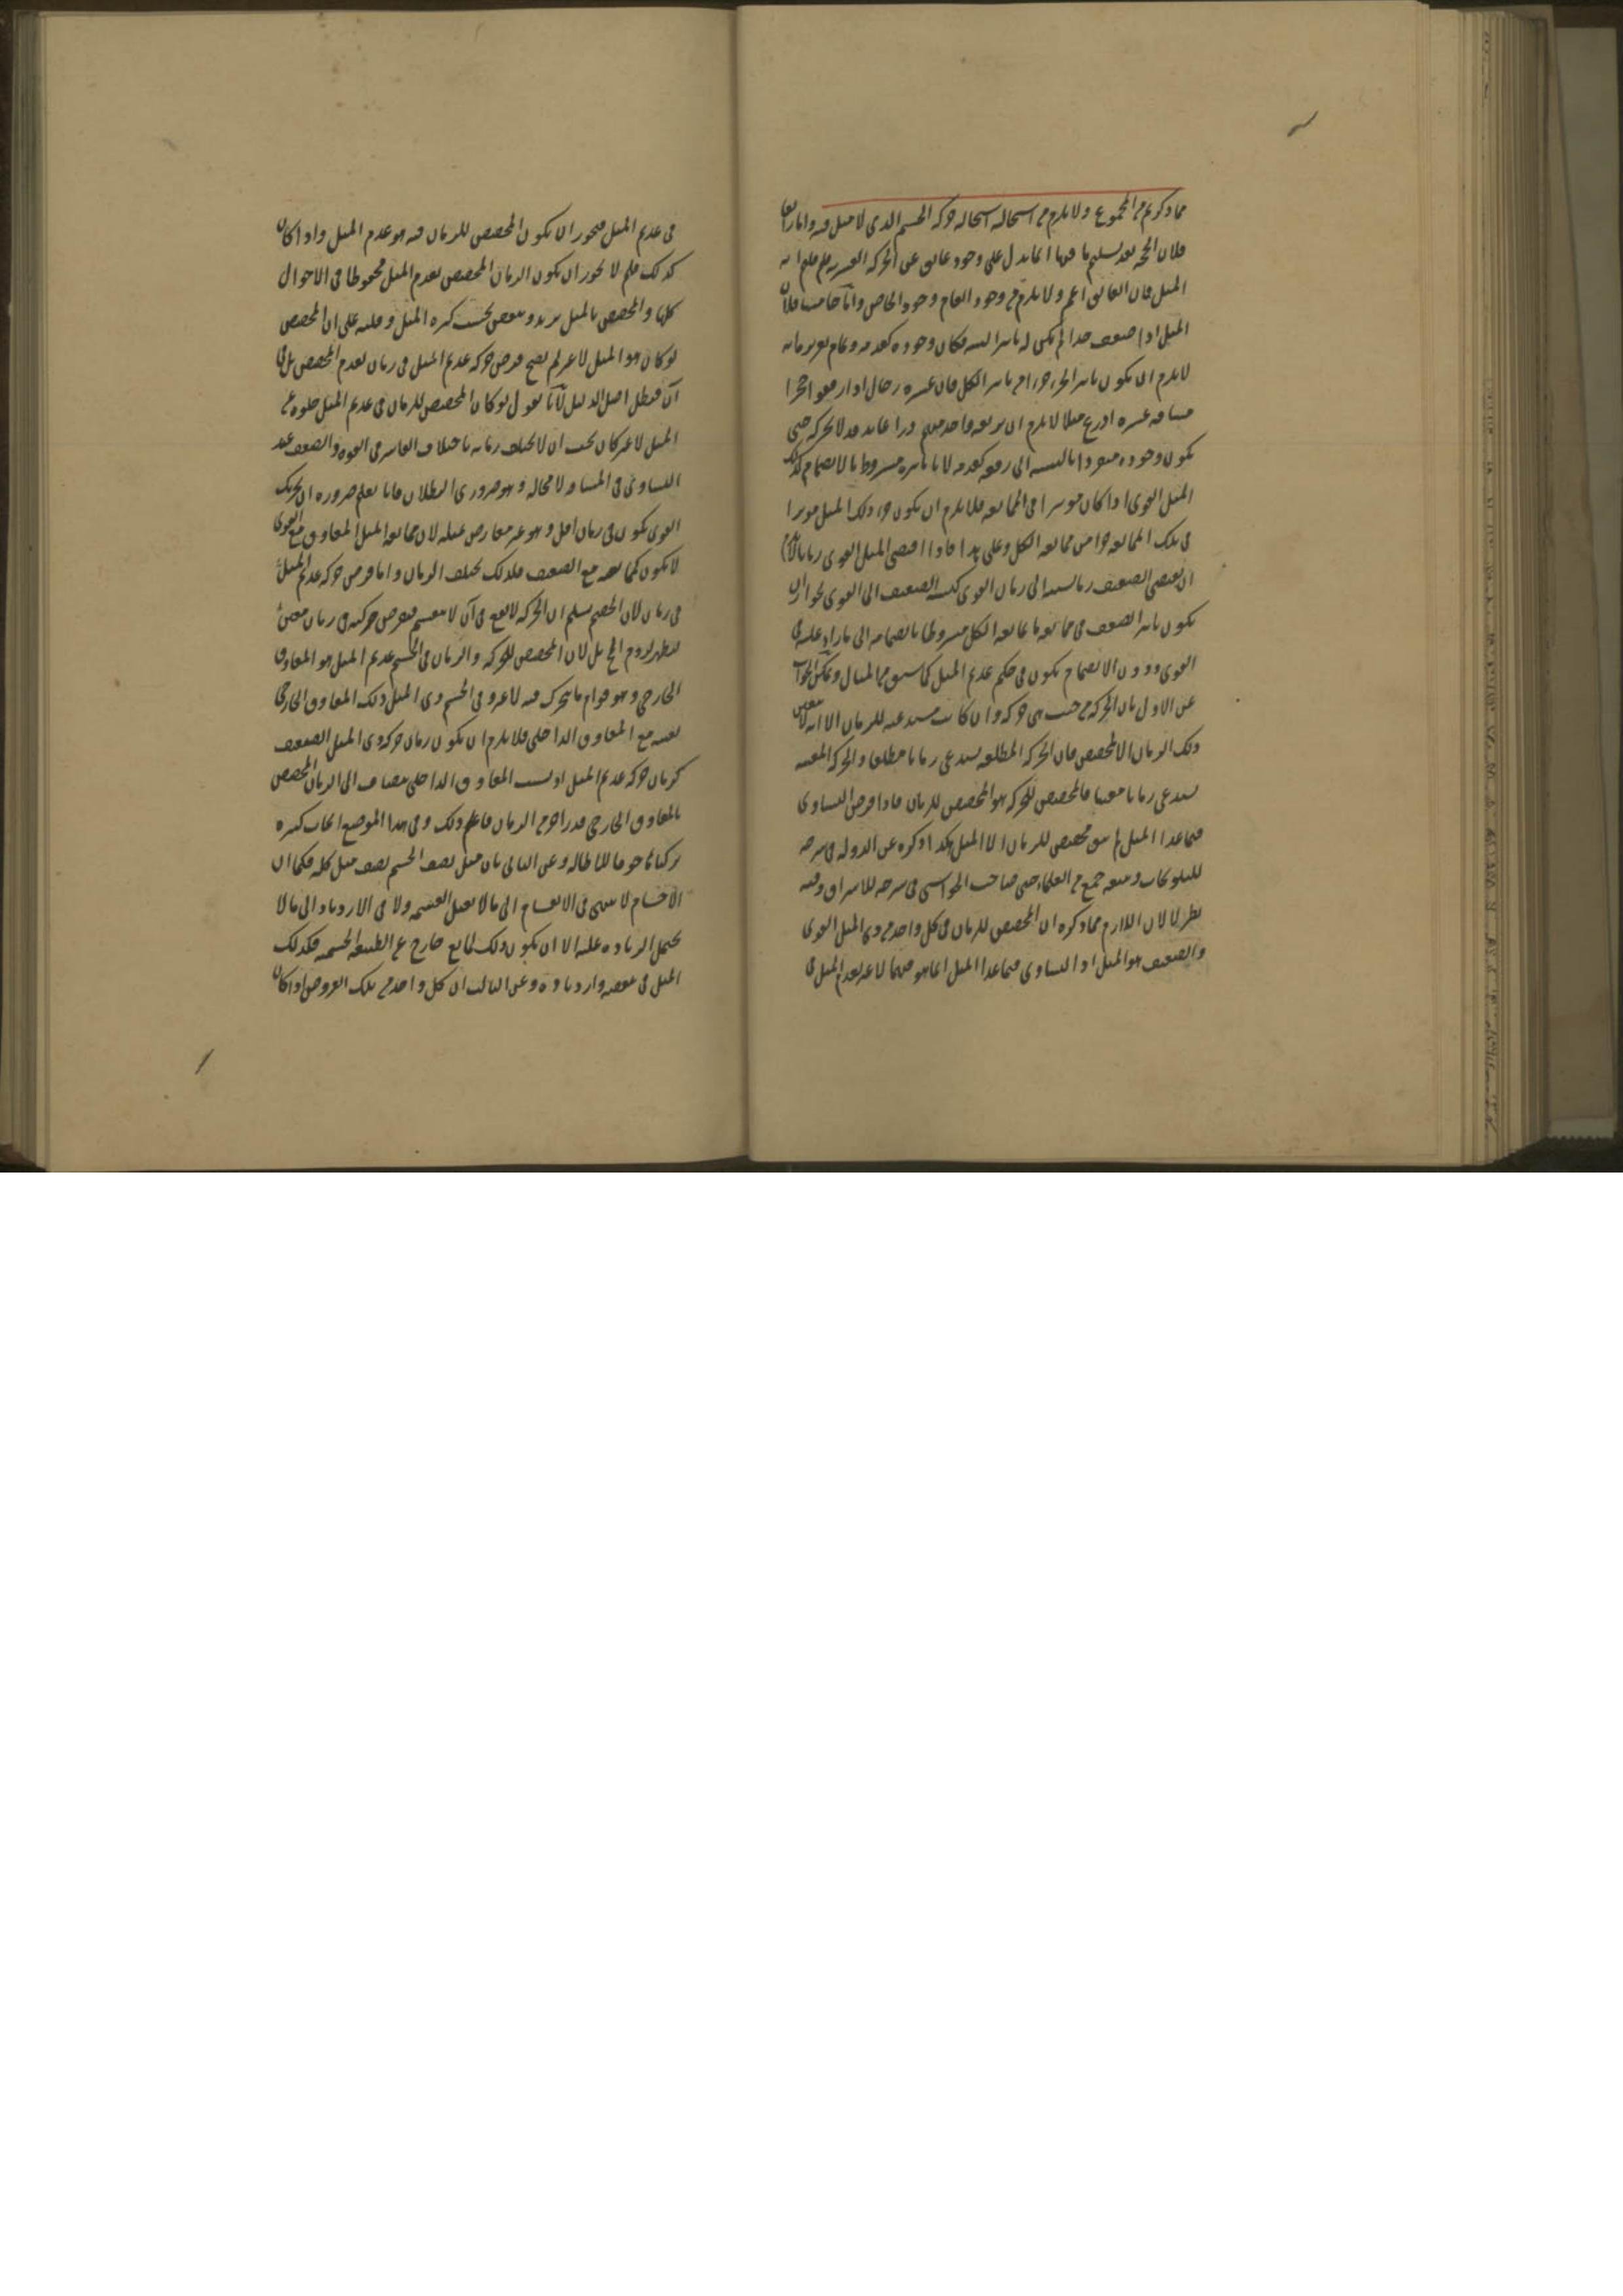 مما ذكرتم المجموع ولا يلزم من استحالته استحالة حركة الجسم الذي لا ميل فيه واما رابعا
فلان الحجة بعد تسليم ما فيها انما يدل على وجود عائق عن الحركة القسرية فلم قلتم انه
الميل فان العائق اعم ولا يلزم من وجود العام وجود الخاص واما خامسا فلان
الميل اذا ضعف جدا لم يكن له تاثير البتة فكان وجوده كعدمه وعام تقريره انه
لا يلزم ان يكون تاثير الجزء جزءا من تاثير الكل فان عشرة رجال اذا رفعوا حجرا
مسافة عشرة اذرع مثلا لا يلزم ان يرفعه واحد منهم ذراعا بل قد لا يحركه حتى
يكون وجوده منفردا بالنسبة الى رفعه كعدمه لان تاثيره مشروط بالانضمام كذلك
الميل القوي اذا كان موثرا في الممانعة فلا يلزم ان يكون جزء ذلك الميل موثرا
في تلك الممانعة جزا من ممانعة الكل وعلى هذا فاذا اقتضى الميل القوي زمانا لا يلزم
ان يقتضي الضعيف زمانا نسبته الى زمان القوي كنسبة الضعيف الى القوي لجواز ان
يكون تاثير الضعيف في ممانعة ما يمانعه الكل مشروطا بانضمامه الى ما زاد عليه في
القوي ودون الانضمام يكون في حكم عديم الميل كما سبق من المثال ويمكن الجواب
عن الاول بان الحركة من حيث هي حركة وان كانت مستدعية للزمان الا انه لا يتعين
ذلك الزمان الا بمخصص فان الحركة المطلقة تستدعي زمانا مطلقا والحركة المعينة
تستدعي زمانا معينا فالمخصص للحركة هو المخصص للزمان فاذا فرض التساوي
فيما عدا الميل لم يبق مخصص للزمان الا الميل هكذا ذكره عز الدولة في شرحه
للتلويحات وتبعه جمع من العلماء حتى صاحب الحواشي في شرحه للاشراق وفيه
نظر لان اللازم مما ذكره ان المخصص للزمان في كل واحد من ذي الميل القوي
والضعيف هو الميل اذ التساوي فيما عدا الميل انما هو فيهما لا عن عديم الميل في
في عديم الميل فيجوز ان يكون المخصص للزمان فيه هو عدم الميل واذا كان
كذلك فلم لا يجوز ان يكون الزمان المخصص بعدم الميل محفوظا في الاحوال
كلها والمخصص بالميل يزيد وينقص بحسب كثرة الميل وقلته على ان المخصص
لو كان هو الميل لا غير لم يصح فرض حركة عديم الميل في زمان لعدم المخصص بل في
آن فبطل اصل الدليل لانا نقول لو كان المخصص للزمان في عديم الميل خلوه عن
الميل لا غير كان يجب ان لا يختلف زمانه باختلاف القاسر في القوة والضعف عند
التساوي في المسافة لا محالة وهو ضروري البطلان فانا نعلم ضرورة ان تحريك
القوي يكون في زمان اقل وهو غير معارض بمثله لان ممانعة الميل المعاوق مع القوي
لا يكون كممانعته مع الضعيف فلذلك يختلف الزمان واما فرض حركة عديم الميل
في زمان لان الخصم يسلم ان الحركة لا تقع في آن لا ينقسم ففرض حركته في زمان معين
ليظهر لزوم المح بل لان المخصص للحركة والزمان في الجسم عديم الميل هو المعاوق
الخارجي وهو قوام ما يتحرك فيه لا غير وفي الجسم ذي الميل ذلك المعاوق الخارجي
بعينه مع المعاوق الداخلي فلا يلزم ان يكون زمان حركة ذي الميل الضعيف
كزمان حركة عديم الميل اذ بسبب المعاوق الداخلي يضاف الى الزمان المخصص
بالمعاوق الخارجي قدر اخر من الزمان فاعلم ذلك وفي هذا الموضع ابحاث كثيرة
تركناها خوفا للاطالة وعن الثاني بان ميل نصف الجسم نصف ميل كله فكما ان
الاجسام لا تنتهي في الانقسام الى ما لا يقبل القسمة ولا في الازدياد الى ما لا
يحتمل الزيادة عليه الا ان يكون ذلك لمانع خارج عن الطبيعة الجسمية فكذلك
الميل في نقصه وازدياده وعن الثالث ان كل واحد من تلك الفروض اذا كان